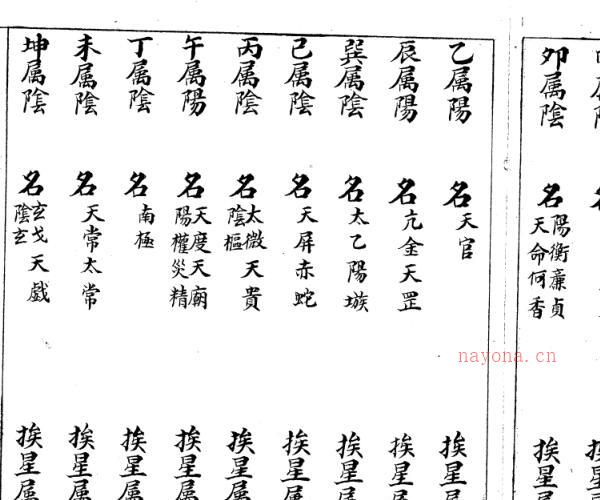 卯属陰 名陽衡廉貞天命何香 挨星属
乙属陽 名天官 挨星属
辰属陽 名亢金天罡 挨星属
巽属陰 名太乙陽璇 挨星属
巳属陰 名天屏赤蛇 挨星属
丙属陰 名太微陰樞天貴 挨星属
午属陽 名天度天廟陽權災精 挨星属
丁属陰 名南極 挨星属
未属陰 名天常太常 挨星属
坤属陰 名玄戈陰玄天戲 挨星属
nayona.cn